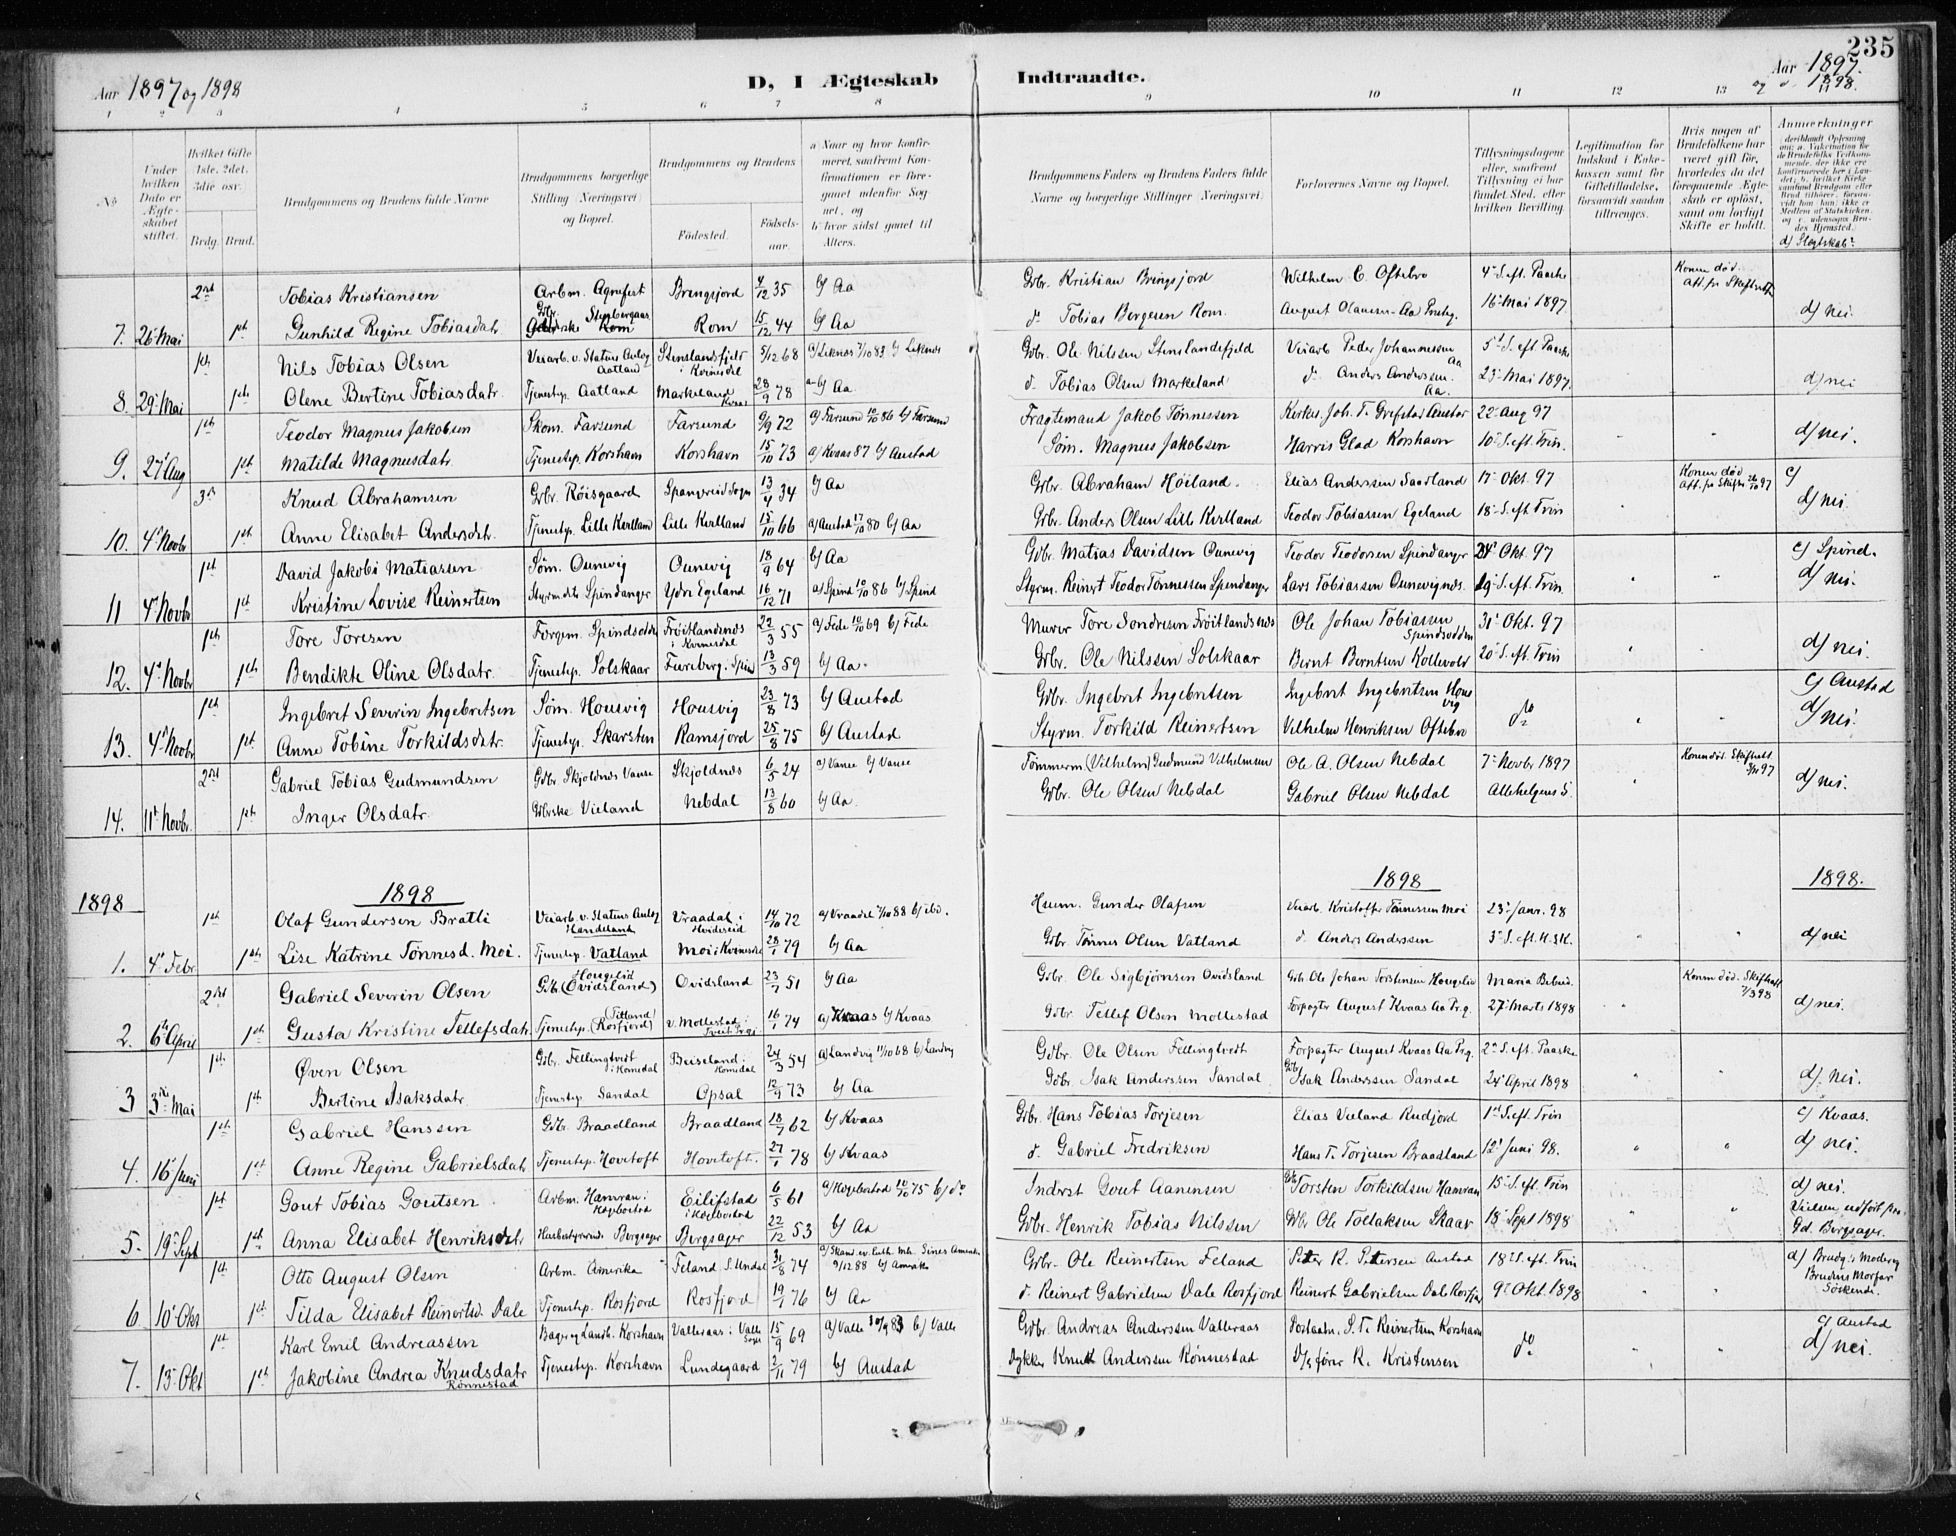 235
Aar 1897 og 1898
D, I Ægteskab Indtraadte.
Aar 1897.
og 1898.
1 2 3 4 5 6 7 8 9 10 11 12 13
No
Under hvilken Dato er Ægteskabet stiftet.
Hvilket Gifte 1ste. 2det. 3die osv.
Brdg. Brud.
Brudgommens og Brudens fulde Navne
Brudgommens borgerlige Stilling (Næringsvei) og Bopæl.
Brudgommens og Brudens
Fødested. Fødselsaar.
a) Naar og hvor konfirmeret, saafremt Konfirmationen er foregaaet udenfor Sognet, og
b) hvor sidst gaaet til Alters.
Brudgommens Faders og Brudens Faders fulde Navne og borgerlige Stillinger (Næringsvei)
Forlovernes Navne og Bopæl.
Tillysningsdagene eller, saafremt Tillysning ei har fundet Sted, efter hvilken Bevilling.
Legitimation for Indskud i Enkekassen samt for Giftetilladelse, forsaavidt saadan tiltrænges.
Hvis nogen af Brudefolkene har været gift før, hvorledes da det foregaaende Ægteskab er opløst, samt om lovligt Skifte er holdt.
Anmærkninger
d) Slegtskab?
2det Tobias Kristiansen Arbm. Agnefest Bringsjord 4/12 35 b/ Aa Gbr. Kristian Bringsjord Wilhelm C. Oftebro 4de S. eft. Paaske Konen død. Att. fr. Skifteret
7. 26' Mai 1ste Gunhild Regine Tobiasdatr. Rom 15/12 44 b/ Aa do Tobias Bergesen Rom. August Olausen Aa 16' Mai 1897. d/ nei.
1ste Nils Tobias Olsen Veiarb. v. Statens Anlæg Aatland Stenslandsfjeld i Kvinesdal 5/12 68 a/ Liknes 7/10 83 b/ Liknes Gbr. Ole Nilssen Stenslandsfjeld Veiarb Peder Johannessen Aa 5te S. eft. Paaske
8. 29' Mai 1ste Olene Bertine Tobiasdatr. Tjenestep. Aatland Markeland Kvaas 28/9 78 a-b/ Aa do Tobias Olsen Markeland do Anders Anderssen Aa. 23' Mai 1897. d/ nei
1ste Teodor Magnus Jakobsen Skom. Farsund Farsund 6/9 72 a/ Farsund 10/10 86 b/ Farsund Fragtemand Jakob Tønnessen Kirkes. Joh. T. Grefstad Austad 22' Aug 97
9. 27' Aug 1ste Matilde Magnusdatr. Tjenestep. Korshavn Korshavn 15/10 73 a/ Kvaas 87 b/ Austad Søm. Magnus Jakobsen Harris Glad Korshavn 10' S. eft. Trin. d/ nei.
3die Knud Abrahamsen Gbr. Røisgaard Spangereid Sogn 13/4 34 b/ Aa Gbr. Abraham Høiland. Elias Anderssen Saadland 17' Okt. 97 Konen død Att. fr. Skifter. 26/10 97 c/
10. 4' Novbr 1ste Anne Elisabet Andersdtr. Tjenestep. Lille Kvelland Lille Kvelland 15/10 66 a/ Austad 17/10 80 b/ Aa Gbr. Anders Olsen Lille Kvelland Teodor Tobiassen Egeland 18' S. eft Trin d/ nei.
1ste David Jakobi Matiasen Søm. Ounevig Ounevig 18/9 64 b/ Aa Gbr. Matias Davidsen Ounevig Teodor Teodorsen Spindanger 24' Okt. 97 c/ Spind.
11 4' Novbr 1ste Kristine Lovise Reinertsen Styrmdtr. Spindanger Ydre Egeland 16/12 71 a/ Spind 10/10 86 b/ Spind Styrm. Reinert Teodor Tønnessen Spindanger Lars Tobiassen Ounevignes. 19' S. eft. Trin. d/ nei.
1ste Tore Toresen Færgem. Spindsodden Frøitlandsnes i Kvinesdal 22/3 55 a/ Fede 10/10 69 b/ Fede Murer Tore Sondresen Frøitlandsnes Ole Johan Tobiassen Spindsodden 31' Okt. 97
12. 4' Novbr 1ste Bendikte Oline Olsdatr. Tjenestep. Solskaar Fureberg. Spind 13/3 59 b/ Aa. Gbr. Ole Nilssen Solskaar Bernt Berntsen Kollevold 20' S. eft. Trin d/ nei.
1ste Ingebret Severin Ingebretsen Søm. Housvig Housvig 23/8 73 b/ Austad Gbr. Ingebret Ingebretsen Ingebret Ingebretsen Housvig c/ Austad
13. 4' Novbr 1ste Anne Tobine Torkildsdtr. Tjenestep. Skarsten Ramsjord 25/8 75 b/ Austad Styrm. Torkild Reinertsen Vilhelm Henriksen Oftebro do d/ nei.
2det Gabriel Tobias Gudmundsen Gbr Skjoldnes Vanse Skjoldnes 6/5 24 a/ Vanse b/ Vanse Tømmerm. (Vilhelm) Gudmund Vilhelmsen Ole A. Olsen Nebdal 7' Novbr 1897 Konen død. Skifteatt.
14. 11' Novbr. 1ste Inger Olsdatr. Gbrske Vieland Nebdal 13/8 60 b/ Aa. Gbr. Ole Olsen Nebdal Gabriel Olsen Nebdal Allehelgens S. d/ nei.
1898 1898 1898 1898.
1ste Olaf Gundersen Bratli Veiarb. v. Statens Anlæg Handeland Vraadal i Hvideseid 14/10 72 a/ Vraadal 7/10 88 b/ ibd. Husm. Gunder Olafsen Veiarb. Kristoffer Tønnessen Moi 23' Janr. 98
1. 4' Febr. 1ste Lise Katrine Tønnesd. Moi. Tjenestep. Vatland Moi i Kvinesdal 28/1 79 b/ Aa Gbr. Tønnes Olsen Vatland do Anders Anderssen 3' S. eft. H. 3K. d/ nei
2det Gabriel Severin Olsen Gbr. Hougelid (Ovidsland) Ovidsland 23/7 51 b/ Aa Gbr. Ole Sigbjørnsen Ovidsland Gbr Ole Johan Torstensen Hougelid Maria Bebud. Konen død. Skifteatt 7/3 98
2. 6te April 1ste Gusta Kristine Tellefsdatr. Tjenestep. (Rosfjord) v. Mollestad i Tveit Prgj. 16/1 74 b/ Kvaas. Gbr. Tellef Olsen Mollestad Forpagter August Kvaas Aa Prg. 27' Marts 1898 d/ nei.
1ste Øven Olsen Gbr. Fellingtveit i Homedal Beiseland i Homedal 24/3 54 a/ Landvig 11/10 68 b/ Landvig Gbr. Ole Olsen Fellingtvedt Forpagter August Kvaas Aa Prg. 2' S. eft. Paaske
3 3die Mai 1ste Bertine Isaksdatr. Tjenestep. Sandal Opsal 12/9 73 b/ Aa Gbr. Isak Anderssen Sandal Gbr Isak Anderssen Sandal 24' April 1898 d/ nei.
1ste Gabriel Hanssen Gbr. Braadland Braadland 18/7 62 b/ Kvaas Gbr. Hans Tobias Torjesen Elias Vieland Rudjord 1ste S. eft. Trin c/ Kvaas.
4. 16' Juni 1ste Anne Regine Gabrielsdatr Tjenestep. Hovetoft Hovetoft. 27/1 78 b/ Kvaas do Gabriel Fredriksen Hans T. Torjesen Braadland 12' Juni 98. d/ nei.
1ste Gout Tobias Goutsen Arbm. Hamran i Hægebostad Eilifstad i Hægebostad 6/5 61 a/ Hægebostad 10/10 75 b/ do Inderst Gout Aanensen Gbr Torsten Torkildsen Hamran 15' S. eft. Trin d/ nei.
5. 19' Sept 1ste Anna Elisabet Henriksdtr Husbestyrerinde Bergsager Bergsager 22/12 53 b/ Aa Gbr. Henrik Tobias Nilssen Gbr Ole Tollaksen Skaar 18' Sept 1898 Vielsen udført paa Gd. Bergsager.
1ste Otto August Olsen Arbm. Amerika Feland S. Undal 31/8 74 a/ Skand. ev. luth. mh. Sines Amerika 9/12 88 b/ Amerika Gbr. Ole Reinertsen Feland Peter R. Petersen Austad 18' S. eft. Trin d/ Brudg.s Moder og Brudens Morfar Søskende.
6 10' Okt 1ste Tilda Elisabet Reinertsd. Dale Tjenestep. Rosfjord Rosfjord 19/1 76 b/ Aa do Reinert Gabrielsen Dale Rosfjord Reinert Gabrielsen Dale Rosfjord 9' Okt. 1898
1ste Karl Emil Andreassen Bager og Landh. Korshavn Valleraas i Valle Sogn 15/9 69 a/ Valle 30/9 83 b/ Valle Gbr. Andreas Anderssen Valleraas Postaabn. S. T. Reinertsen Korshavn c/ Austad
7. 13' Okt 1ste Jakobine Andrea Knudsdatr Rønnestad Tjenestep. Korshavn Lundegaard 2/11 79 b/ Austad Dykker Knud Anderssen Rønnestad D/s fører R. Kristensen do d/ nei.